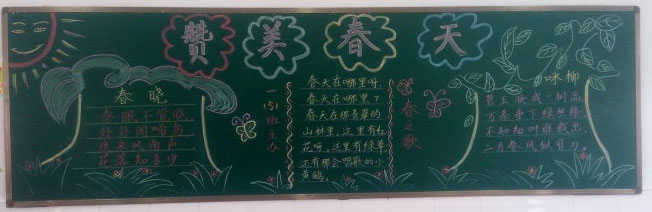 赞美春天
春晓
春眠不觉晓
处处闻啼鸟
夜来风雨声
花落知多少
一(5)班主办
春天在哪里呀,
春天在哪里?
春天在那青翠的
山林里,这里有红
花呀,这里有绿草
还有那会唱歌的小
黄鹂。
春之歌
咏柳
碧玉妆成一树高
万条垂下绿丝绦
不知细叶谁裁出
二月春风似剪刀。